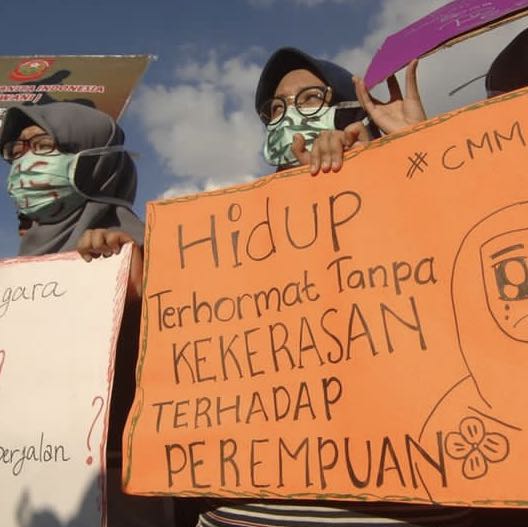 INDONESIA
# CMM
HiDUP
Terhormat Tanpa
KEKERASAN
TERHADAP
PEREMPUAN
gara
?
erjalan ?